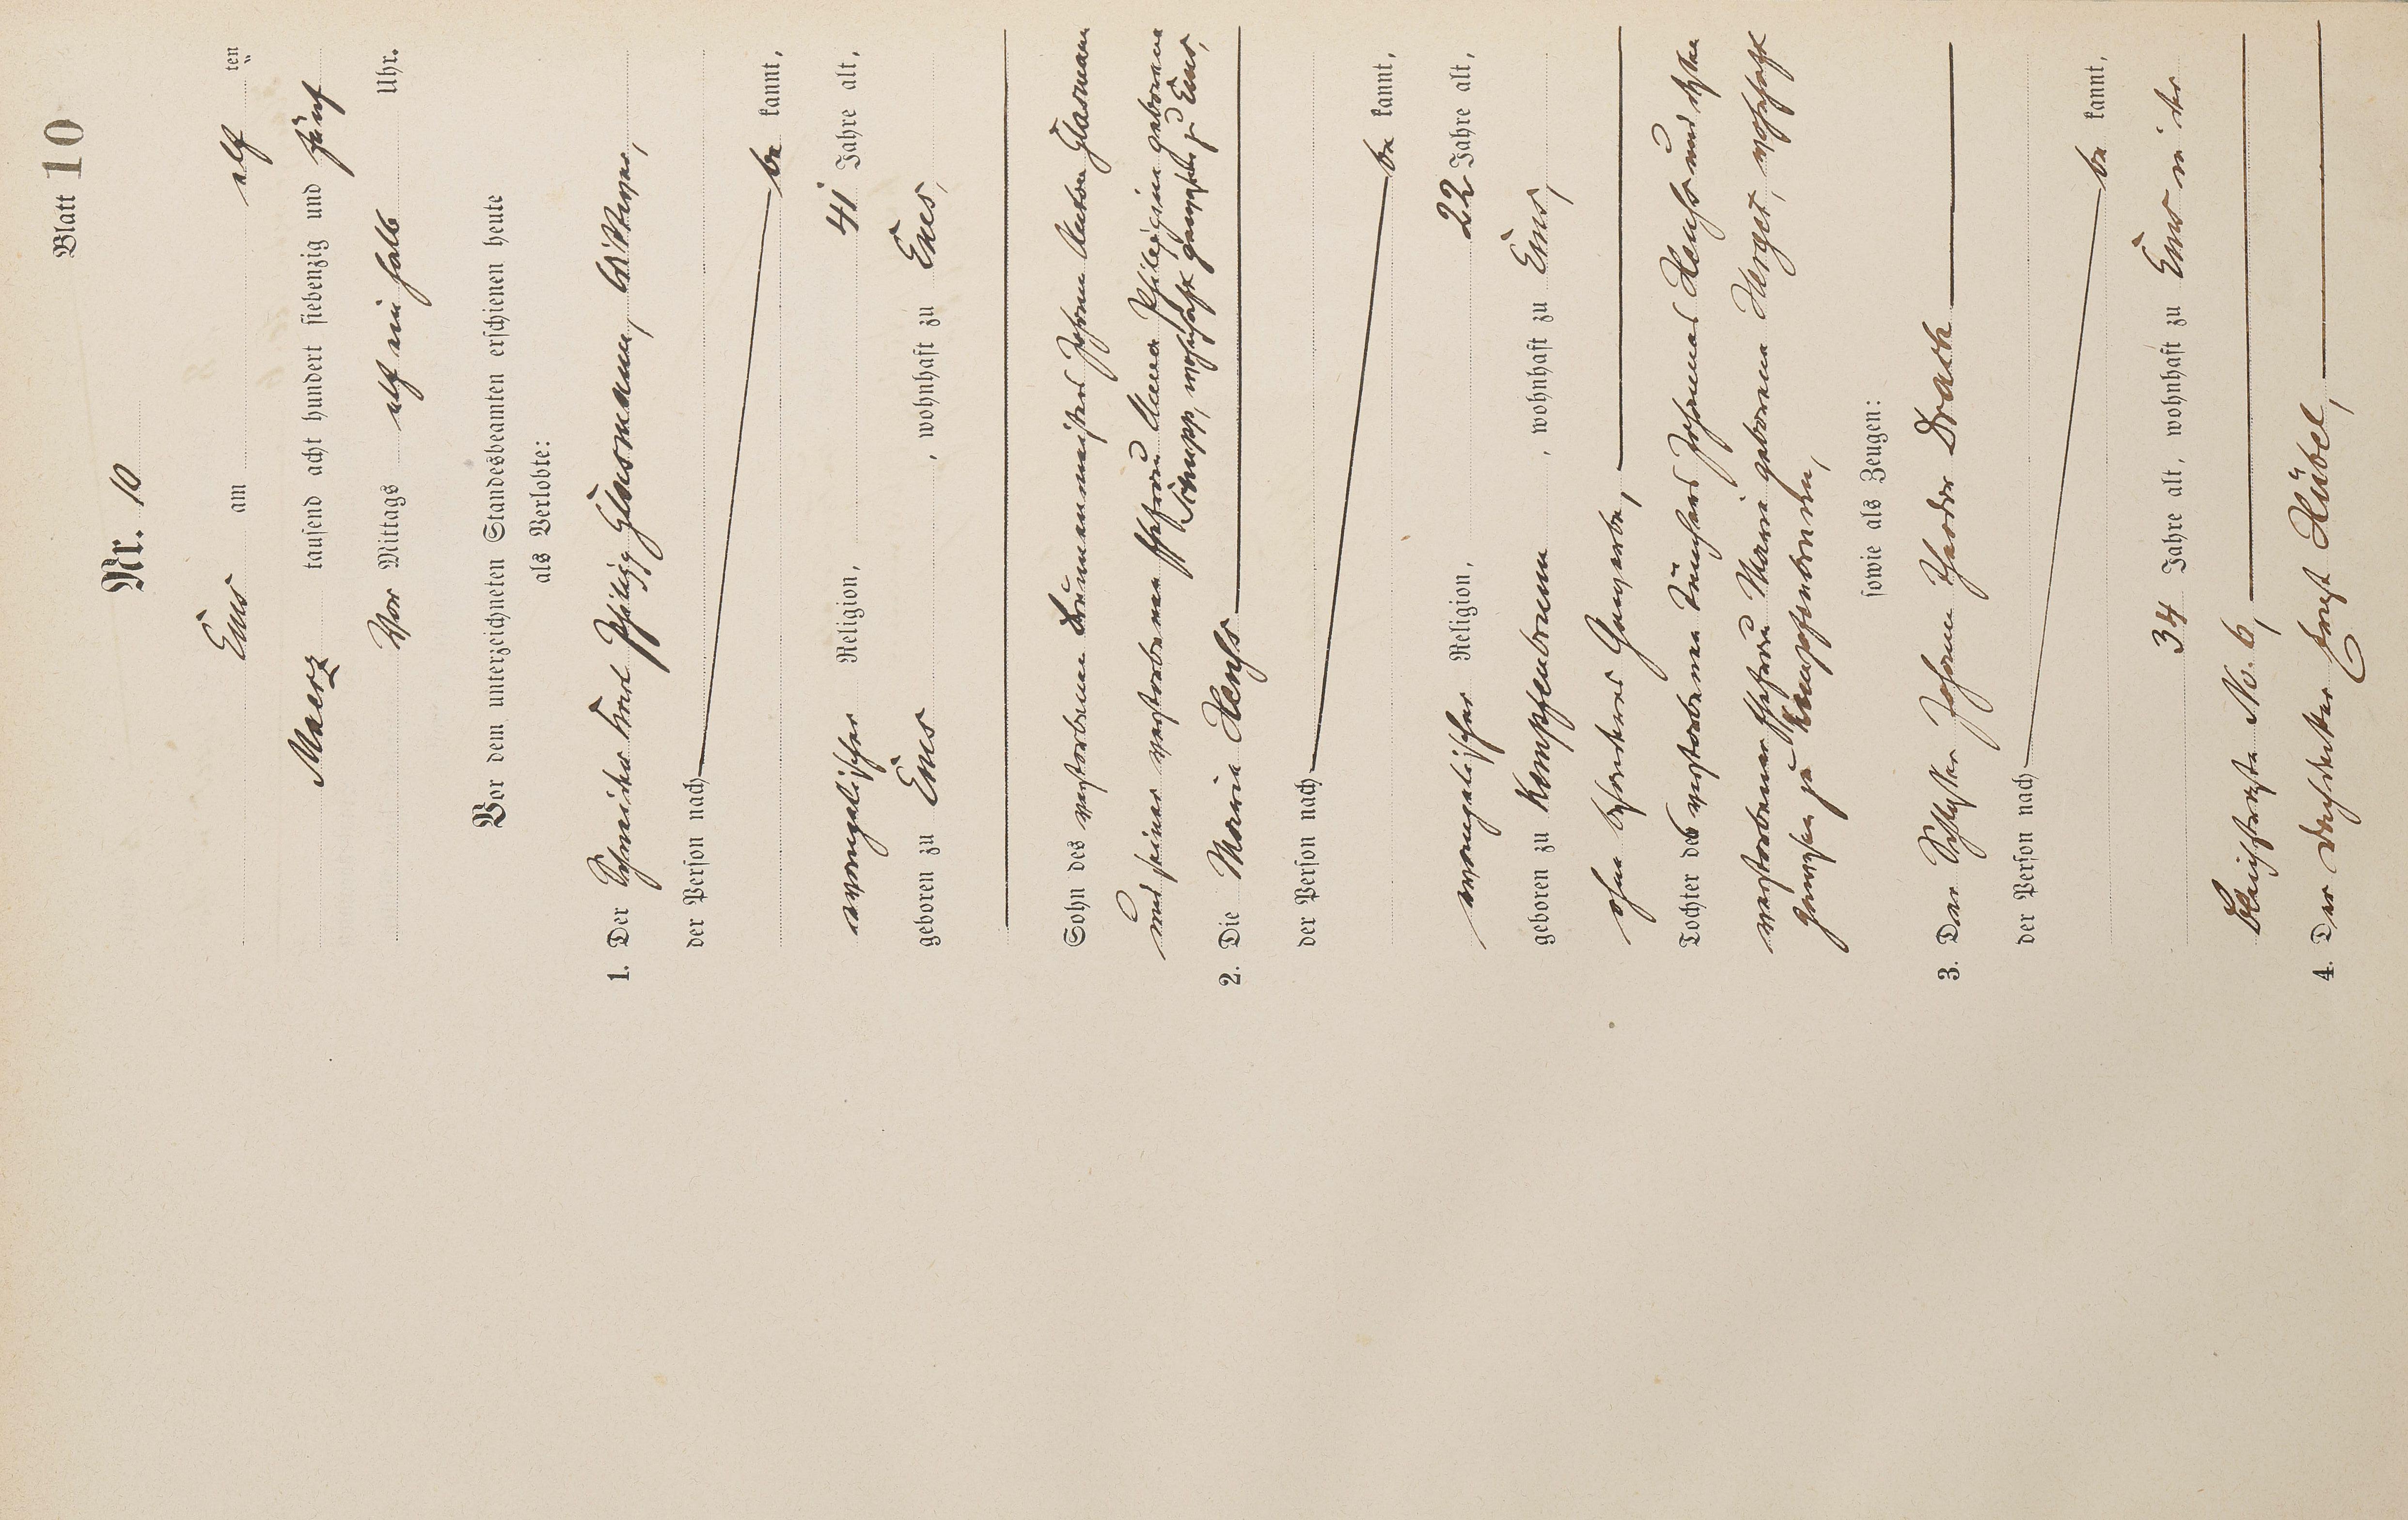 Blatt 10
Nr. 10
Ems am elf ten
Maerz tausend acht hundert siebenzig und fünf
Vor Mittags elf ein halb Uhr.
Vor dem unterzeichneten Standesbeamten erschienen heute
als Verlobte:
1. Der Schneider Karl Philipp Glasmann, Wittwer,
der Person nach
be kannt,
evangelischer Religion, 41 Jahre alt,
geboren zu Ems , wohnhaft zu Ems,
Sohn des verstorbenen Anton Glasmann
und seiner verstorbenen Ehefrau Anna Philippine geborene
wohnhaft gewesen zu Ems,
2. Die Maria Henss
der Person nach
be kannt,
evangelischer Religion, 22 Jahre alt,
geboren zu Kempfenbrunn , wohnhaft zu Ems,
ohne besonderes Gewerbe,
Tochter des verstorbenen Johannes Henss und dessen
verstorbener Ehefrau Maria geborene Herget, wohnhaft
gewesen zu Kempfenbrunn,
sowie als Zeugen:
3. Der Schlosser Johann Theodor Drach
der Person nach
be kannt,
34 Jahre alt, wohnhaft zu Ems in der
No. 6,
4. Der Dachdecker Ernst Hübel,